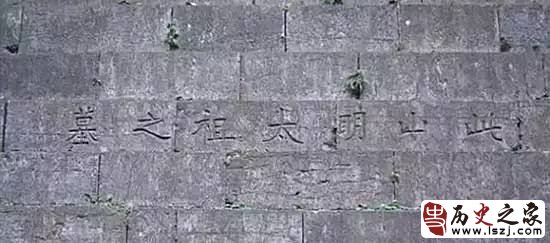 此山明太祖之墓
历史之家
www.lszj.com